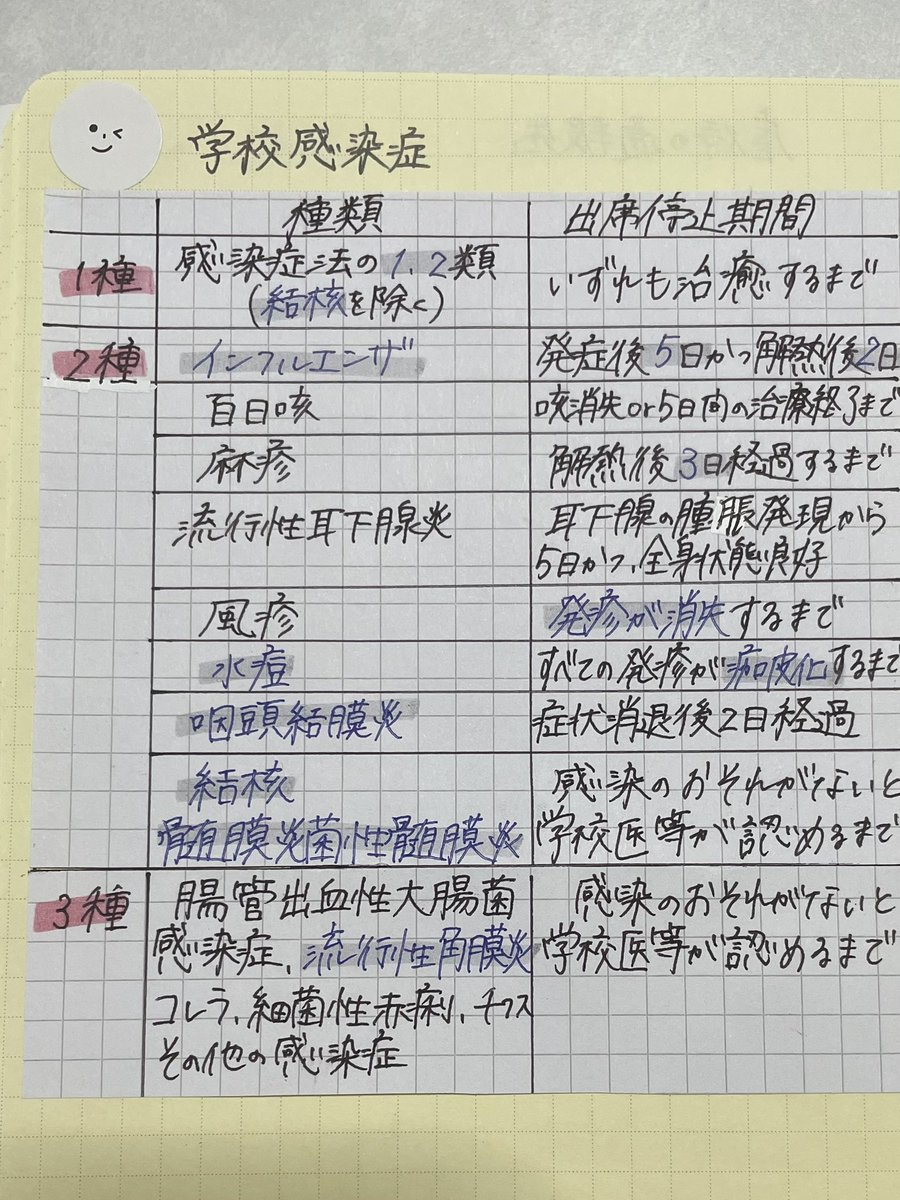 学校感染症
種類 出席停止期間
1種 感染症法の1.2類 いずれも治癒するまで
(結核を除く)
2種 インフルエンザ 発症後5日かつ解熱後2日
百日咳 咳消失or5日間の治療終了まで
麻疹 解熱後3日経過するまで
流行性耳下腺炎 耳下腺の腫脹発現から
5日かつ、全身状態良好
風疹 発疹が消失するまで
水痘 すべての発疹が痂皮化するまで
咽頭結膜炎 症状消退後2日経過
結核 感染のおそれがないと
髄膜炎菌性髄膜炎 学校医等が認めるまで
3種 腸管出血性大腸菌 感染のおそれがないと
感染症、流行性角膜炎 学校医等が認めるまで
コレラ、細菌性赤痢、チフス
その他の感染症